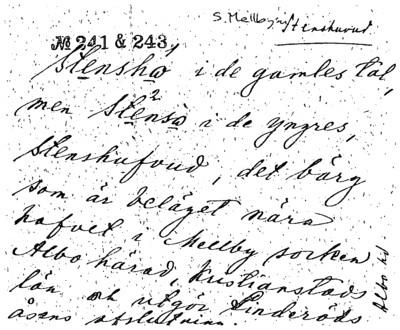 S. Mellby
Stenshuvud
№ 241 & 243,
Stenshø i de gamles tal,
men Stensø i de yngres,
Stenshufvud, det bärg
som är beläget nära
hafvet i Mellby socken
Albo härad, Kristianstads
län och utgör Linderöds
åsens afslutning.
Albo hd